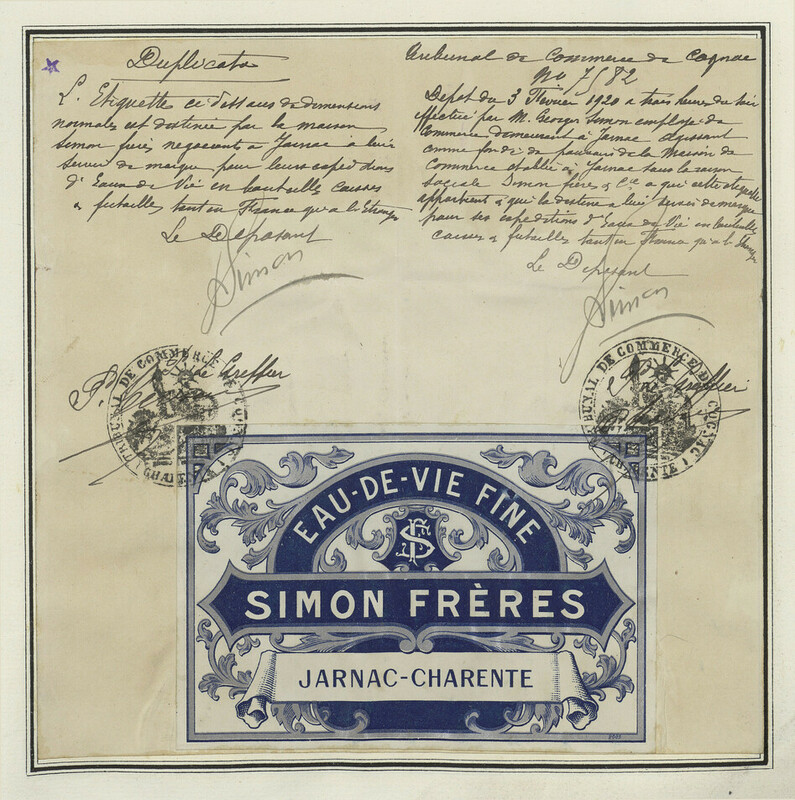 Duplicata
L'Etiquette ci dessus de dimensions
normales est destinée par la maison
Simon frères negociants a Jarnac a leur
servir de marque pour leurs expeditions
d'Eaux de Vie en bouteilles caisses
& futailles tant en France qu'a l'Etranger
Le Deposant
Simon
Tribunal de Commerce de Cognac
No 7582
Depot du 3 Février 1920 a trois heures du soir
effectué par M. Georges Simon employé de
Commerce demeurant à Jarnac agissant
comme fondé de pouvoirs de la Maison de
Commerce établie à Jarnac sous la raison
sociale Simon frères & Cie a qui cette etiquette
appartient & qui la destine a leur servir de marque
pour ses expeditions d'Eaux de Vie en bouteilles
caisses & futailles tant en France qu'a l'Etranger
Le Deposant
Simon
Le Greffier
TRIBUNAL DE COMMERCE DE COGNAC
(CHARENTE)
Le Greffier
TRIBUNAL DE COMMERCE DE COGNAC
(CHARENTE)
EAU-DE-VIE FINE
SF
SIMON FRÈRES
JARNAC-CHARENTE